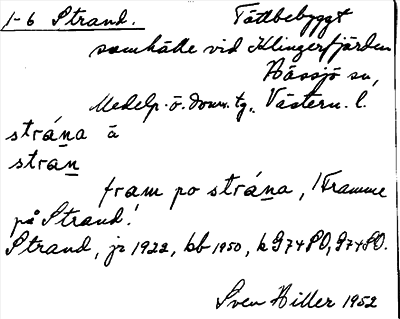 1-6 Strand. Tättbebyggt
samhälle vid Klingerfjärden
Hässjö sn,
Medelp. ö. doms. tg., Västern. l.
strána ä
strán
fram po strána, 'Framme
på Strand'.
Strand, jr 1922, kb 1950, k 974PO, 974PO.
Sven Hiller 1952